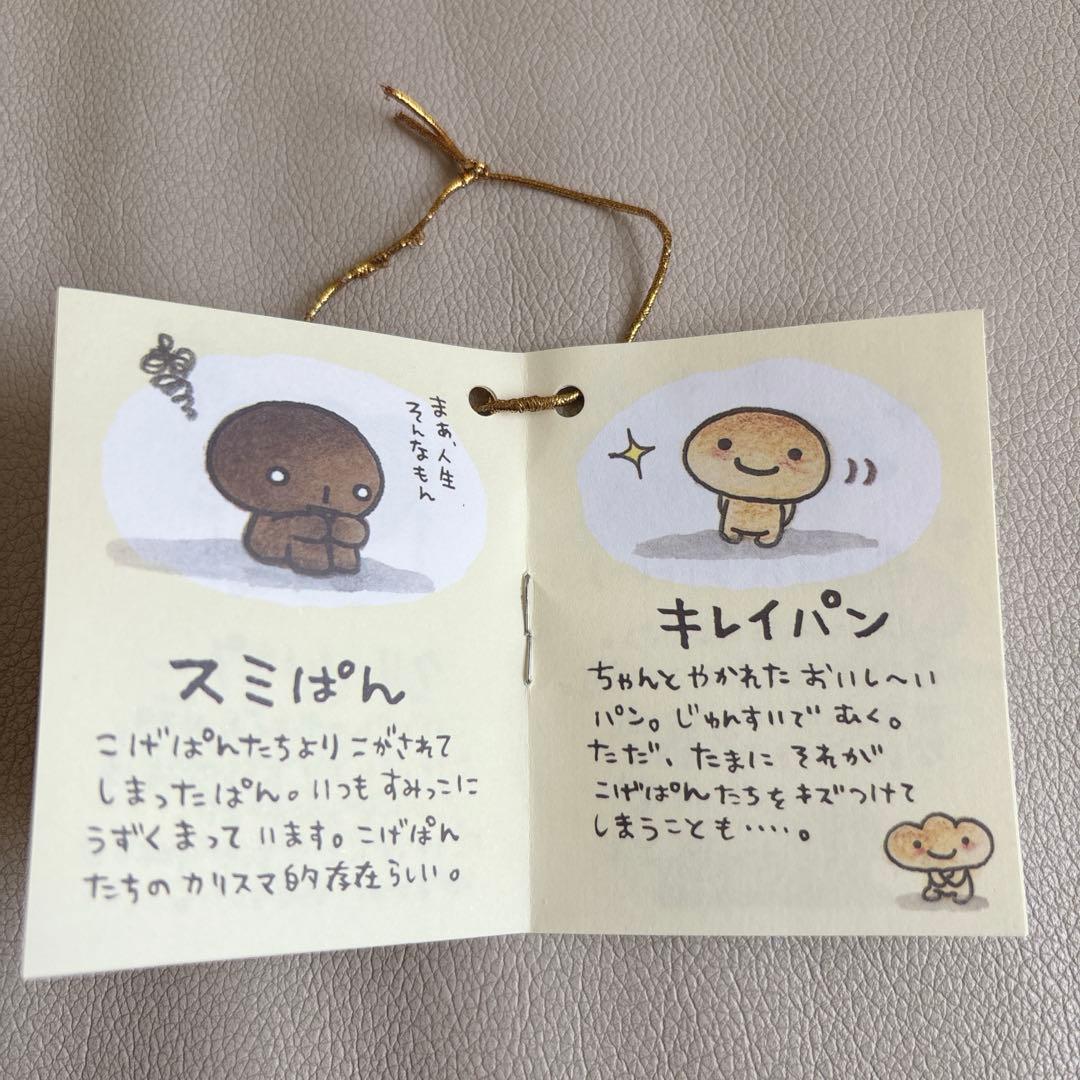 まあ、人生
そんなもん
スミぱん
こげぱんたちより こがされて
しまった ぱん。いつも すみっこに
うずくまって います。こげぱん
たちの カリスマ的存在らしい。
キレイパン
ちゃんと やかれた おいし〜い
パン。じゅんすいで むく。
ただ、たまに それが
こげぱんたちを キズつけて
しまうことも・・・・。